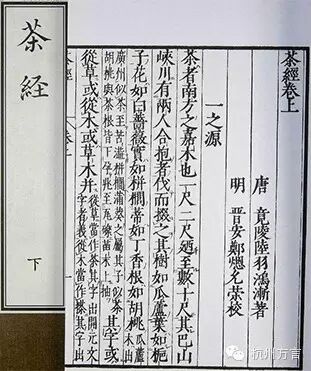 茶經卷上
唐 竟陵陸羽鴻漸著
明 晋安鄭熜允榮校
一之源
茶者南方之嘉木也一尺二尺廼至數十人其巴山
峽川有兩人合抱者伐而掇之其樹如瓜蘆葉如梔
子花如白薔薇實如栟櫚蒂如丁香根如胡桃瓜蘆木出
廣州似茶至苦澁栟櫚蒲葵之屬其子似茶
胡桃與茶根皆下孕兆至瓦礫苗木上抽
其字或
從草或從木或草木并
從草當作茶其字出開元文
字者義從木當作搽其字出
茶經
茶经
下
杭州方言